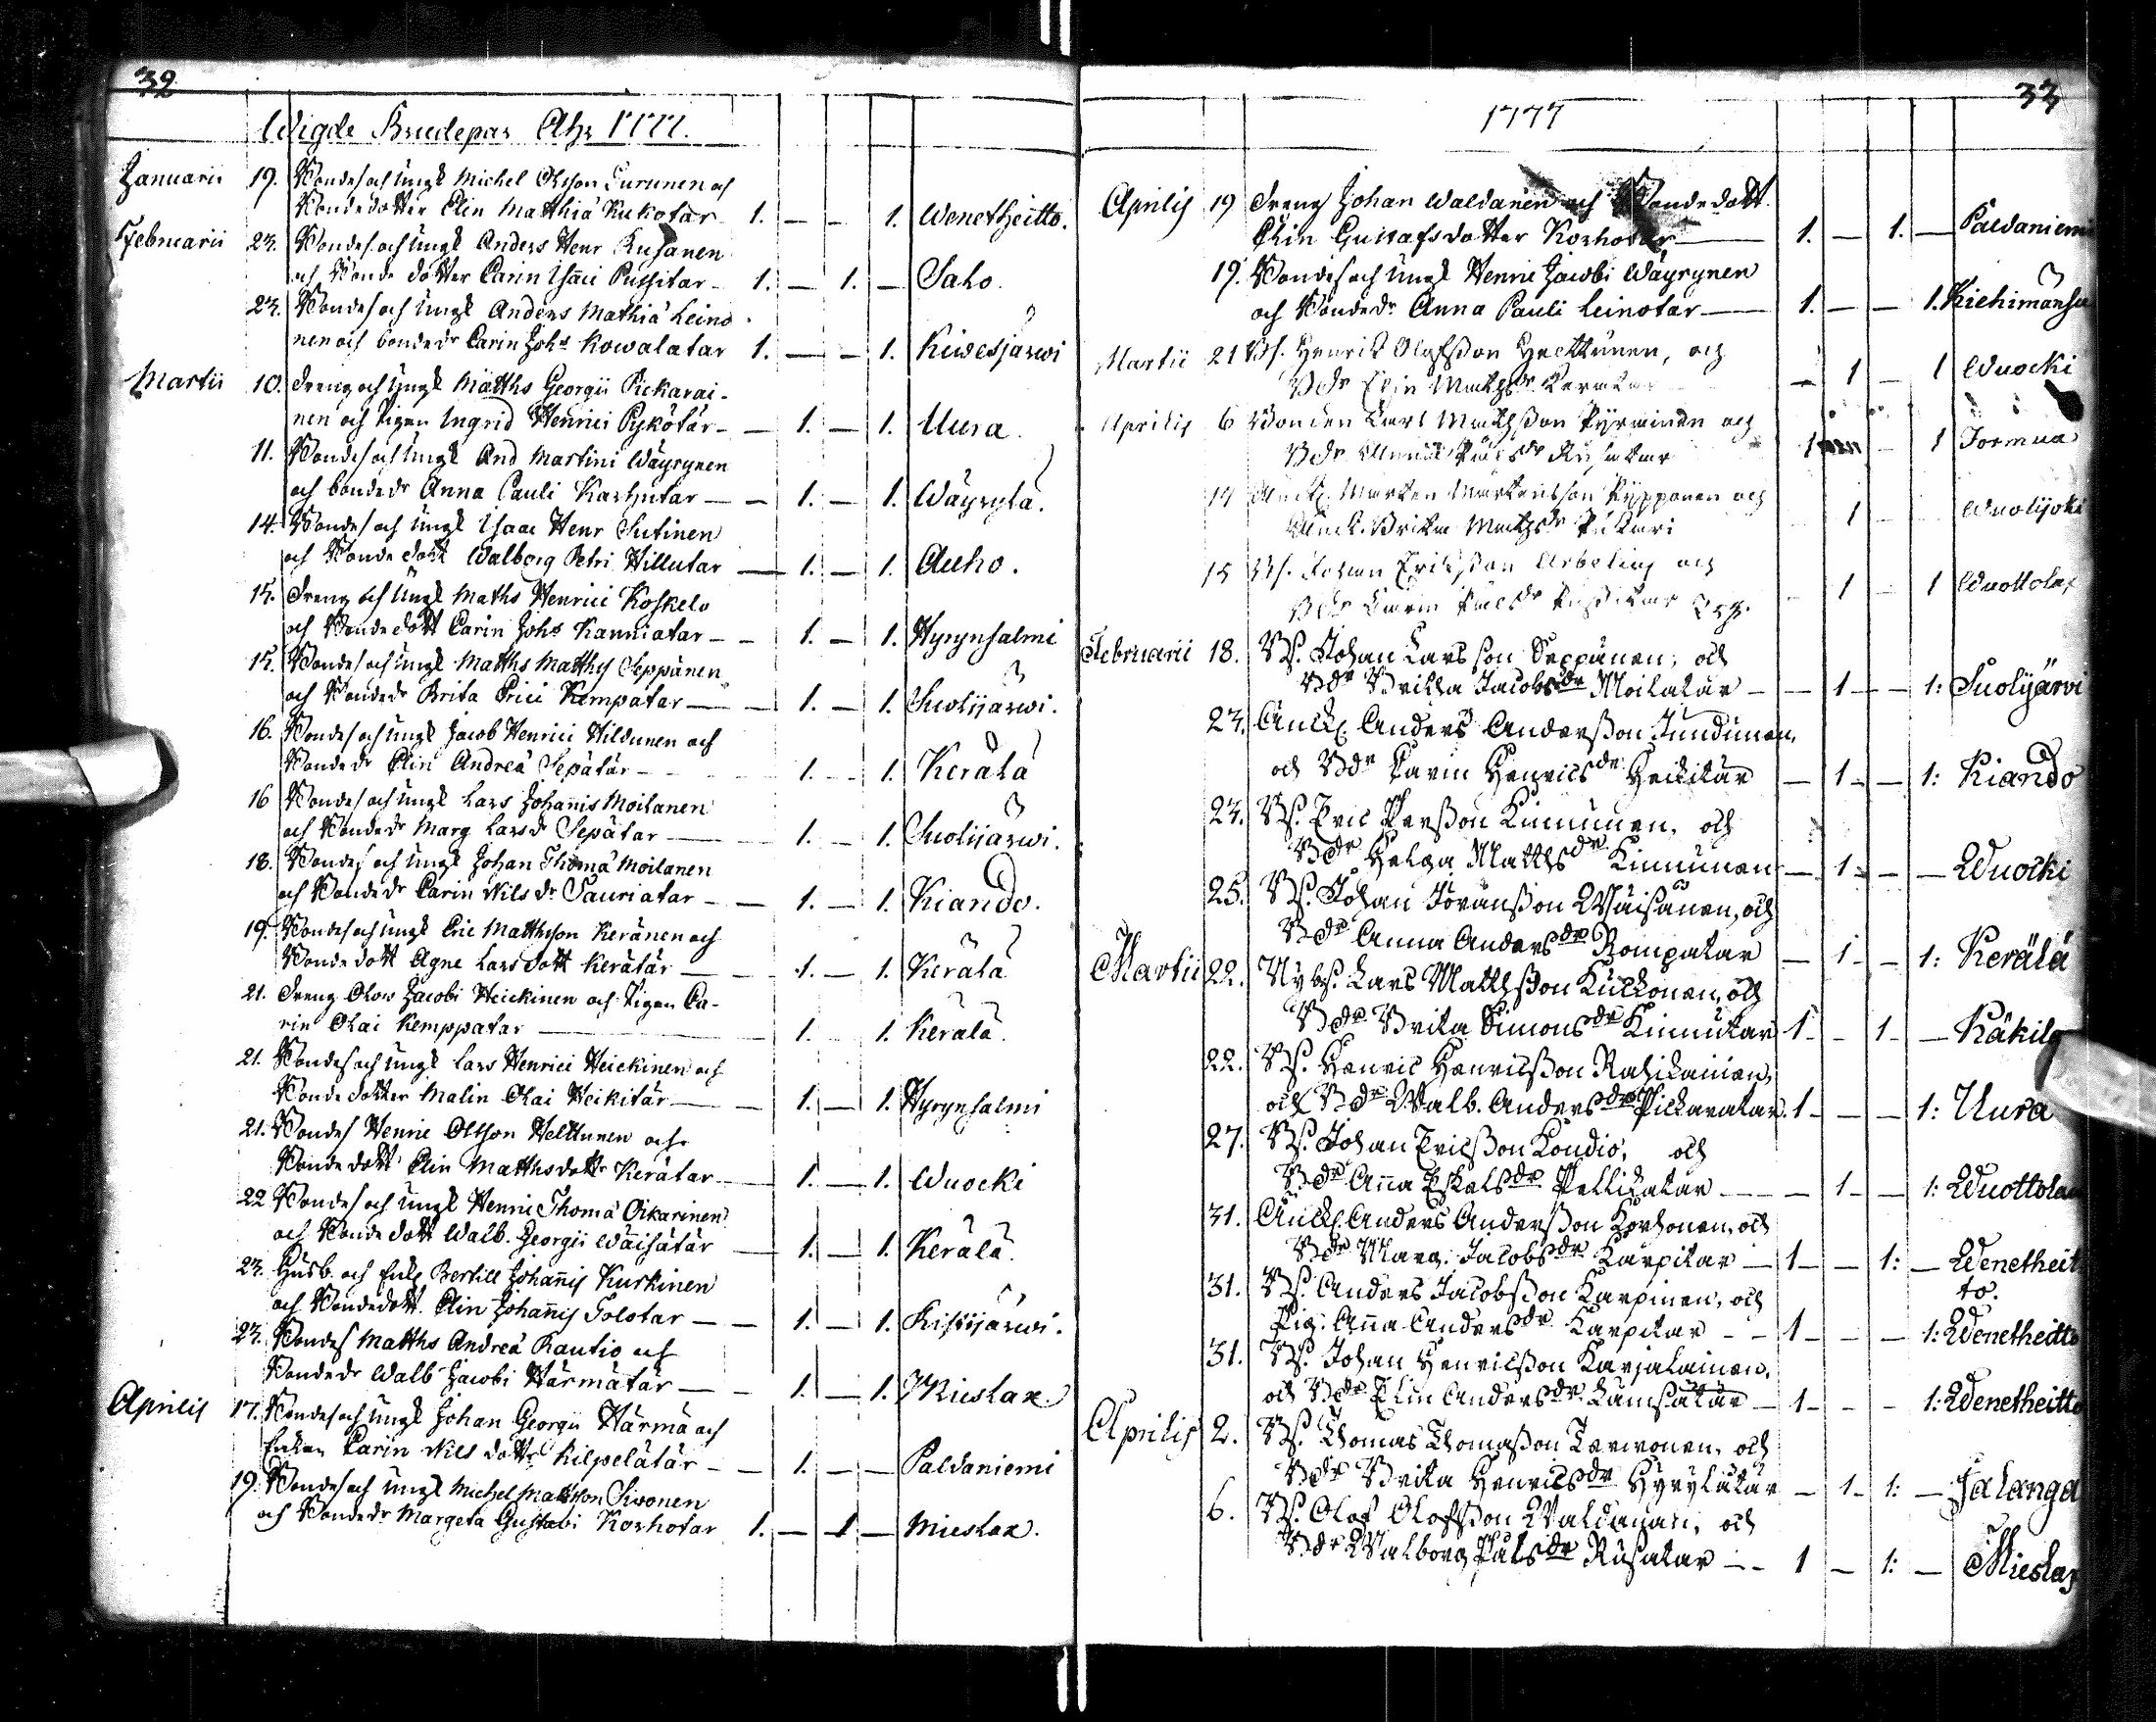 32
Wigde Brudepar Åhr 1777.
Januarii 19. Bondes. och Ungk Michel Olsson Turunen och
Bondedotter Elin Matthiä Kukotar 1. — — 1. Wenetheitto.
Februarii 23. Bondes. och Ungk Anders Henr Rusanen
och Bonde dotter Carin Isaci Pussitar 1. — 1. — Salo
23. Bondes och Ungk Anders Mathiä Leino
nen och bondedr Carin Johs Kowalatar 1. — — 1. Kiwesjärwi
Martii 10. Dreng och Ungk Matths Georgii Pickarai-
nen och Pigan Ingrid Henrici Pykötär — 1. — 1. Uura.
11. Bondes och Ungk And Martini Wäyrynen
och bondedr Anna Pauli Karhutar — 1. — 1. Wäyrylä.
14. Bondes och Ungk Isaac Henr Sutinen
och Bonde dott Walborg Petri Hillutar — 1. — 1. Auho.
15. Dreng och Ungk Maths Henrici Koskelo
och Bonde dott Carin Johs Kanniatar — 1. — 1. Hyrynsalmi
15. Bondes och Ungk Matths Matthiæ Seppänen
och Bondedr Brita Erici Kempatar — 1. — 1. Suolijärwi.
16. Bondes och Ungk Jacob Henrici Hildunen och
Bondedr Elin Andreä Sepätär — 1. — 1. Kerälä
16 Bondes och Ungk Lars Johannis Moilanen
och Bondedr Marg Larsdr Sepätar — 1. — 1. Suolijärwi.
18. Bondes och Ungk Johan Thomä Moilanen
och Bondedr Carin Nilsdr Tauriatar — 1. — 1. Kiando.
19. Bondes och Ungk Eric Matthsson Keränen och
Bonde dott Agne Lars dott Kerätär — 1. — 1. Kerälä
21. Dreng Olow Jacobi Heickinen och Pigan Ca-
rin Olai Kemppatar — 1. 1. Kerälä.
21. Bondes och Ungk Lars Henrici Heickinen och
Bonde dotter Malin Olai Heikitär — 1. — 1. Hyrynsalmi
21. Bondes Henric Olsson Helttunen och
Bonde dott Elin Matthsdottr Kerätar — 1. — 1. Wuocki
22 Bondes och Ungk Henric Thomä Oikarinen
och Bonde dott Walb. Georgii Wäisätär — 1. — 1. Kerälä.
23. Husb. och Enkl Bertill Johannis Kurkinen
och Bondedott. Elin Johannis Tolotar — 1. — 1. Ristijärwi.
23. Bondes Matths Andreä Rautio och
Bondedr Walb Jacobi Härmätär — 1. — 1. Mieslax.
Aprilis 17. Bondes och Ungk Johan Georgii Härmä och
Enkan Carin Nils dotter Kilpelätär — 1. — — Paldaniemi
19. Bondes och Ungk Michel Matsson Siwonen
och Bondedr Margeta Gustavi Korhotar 1. — 1 — Mieslax.
33
1777
Aprilis 19 Dreng Johan Waldanen och Bondedott
Elin Gustafsdotter Korhotar — 1. — 1. — Paldaniemi
19. Bondes och Ungk Henric Jacobi Wäyrynen
och Bondedr Anna Pauli Leinotar — 1. — — 1. Kiehimänsu
Martii 21 Bs. Henrik Olofsson Helttunen, och
Bdr Elin Mathsdr Keratar — 1 — 1 Wuocki
Aprilis 6 Bonden Lars Mathsson och
Bdr Pålsdr Rusatar 1 — 1 Jormua
14 Enckl. Mårten Mårtensson Kypponen och
Enck. Brita Mathsdr — 1 — Wuolijoki
15 Bs. Johan Ericsson och
Bdr Carin Pålsdr — 1 — 1 Wuottolax
Februarii 18. Bs. Johan Larsson Seppänen, och
Bdr Britha Jacobsdr Moilatar — 1 — 1: Suolijärvi
23. Enckl. Anders Andersson Jundunen,
och Bdr Karin Henricsdr Heikitär — 1 — 1: Kiando
23. Bs. Eric Persson Kinnunen, och
Bdr Helga Mattsdr Kinnunen — 1 — — Wuocki
25. Bs. Johan Jöransson Wäisänen, och
Bdr Anna Andersdr Kompatar — 1 — 1: Kerälä
Martii 22. Nybs. Lars Mattsson Kuckonen, och
Bdr Brita Simonsdr Kinnutar 1 — 1 — Käkilä
22. Bs. Henric Henricsson Rahikainen,
och Bdr Walb. Andersdr Pickaratar. 1 — — 1: Uura
27. Bs. Johan Ericsson Kondio, och
Bdr Anna Eskelsdr Pellikatar — 1 — 1: Wuottolax
31. Enckl. Anders Andersson Korhonen, och
Bdr Marg. Jacobsdr Karpitar — 1 — 1: — Wenetheit
to.
31. Bs. Anders Jacobsson Karpinen, och
Pig. Anna Andersdr Karpitar — 1 — — 1: Wenetheitto
31. Bs. Johan Henricsson Karjalainen,
och Bdr Elin Andersdr Lämsätär — 1 — — 1: Wenetheitto
Aprilis 2. Bs. Thomas Thomasson Terwonen, och
Bdr Brita Henricsdr Hyrylätär — 1 1: — Jalanga
6. Bs. Olof Olofsson Waldanen, och
Bdr Walborg Pålsdr Rusatar — 1 — 1: — Mieslax